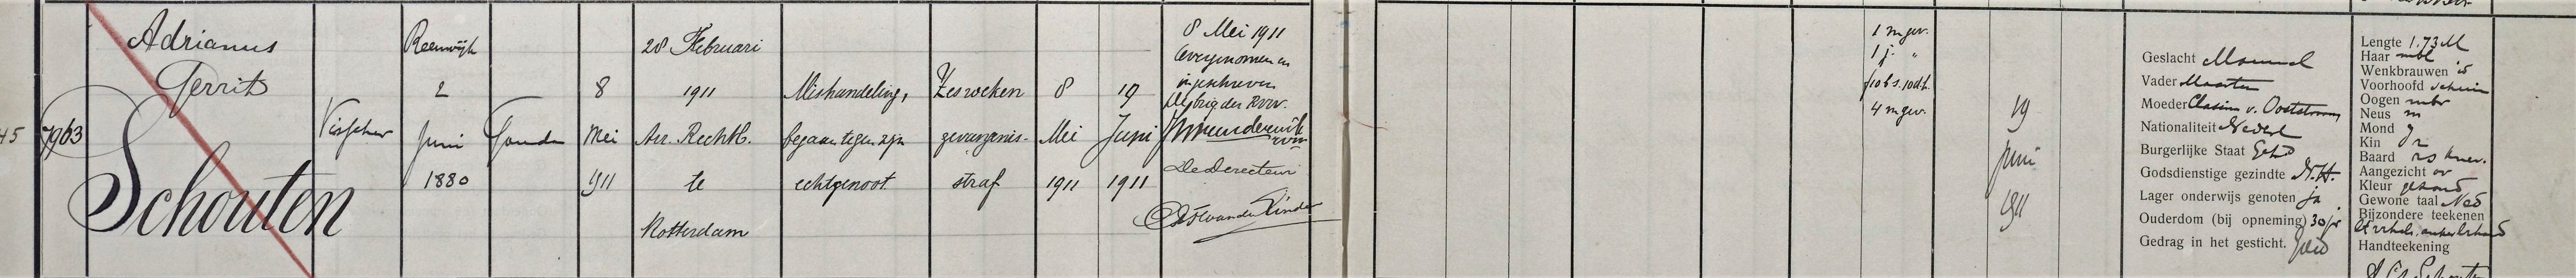 45
7963
Adrianus
Gerrit
Schouten
Visscher
Reeuwijk
2
Juni
1880
Gouda
8
Mei
1911
28 Februari
1911
Arr. Rechtb.
te
Rotterdam
Mishandeling,
begaan tegen zijn
echtgenoot
Zes weken
gevangenis-
straf
8
Mei
1911
19
Juni
1911
8 Mei 1911
Overgenomen en
ingeschreven
De Directeur
1 m gev.
1 j. "
4 m gev.
19
Juni
1911
Geslacht Mannel
Vader Maarten
Moeder Clasina v. Ooststroom
Nationaliteit Nederl
Burgerlijke Staat Geh
Godsdienstige gezindte N.H.
Lager onderwijs genoten ja
Ouderdom (bij opneming) 30 jr
Gedrag in het gesticht. Goed
Lengte 1.73 M
Haar mbl
Wenkbrauwen id
Voorhoofd schuin
Oogen
Neus m
Mond g
Kin r
Baard rs knev.
Aangezicht ov
Kleur gezond
Gewone taal Ned
Bijzondere teekenen
Handteekening